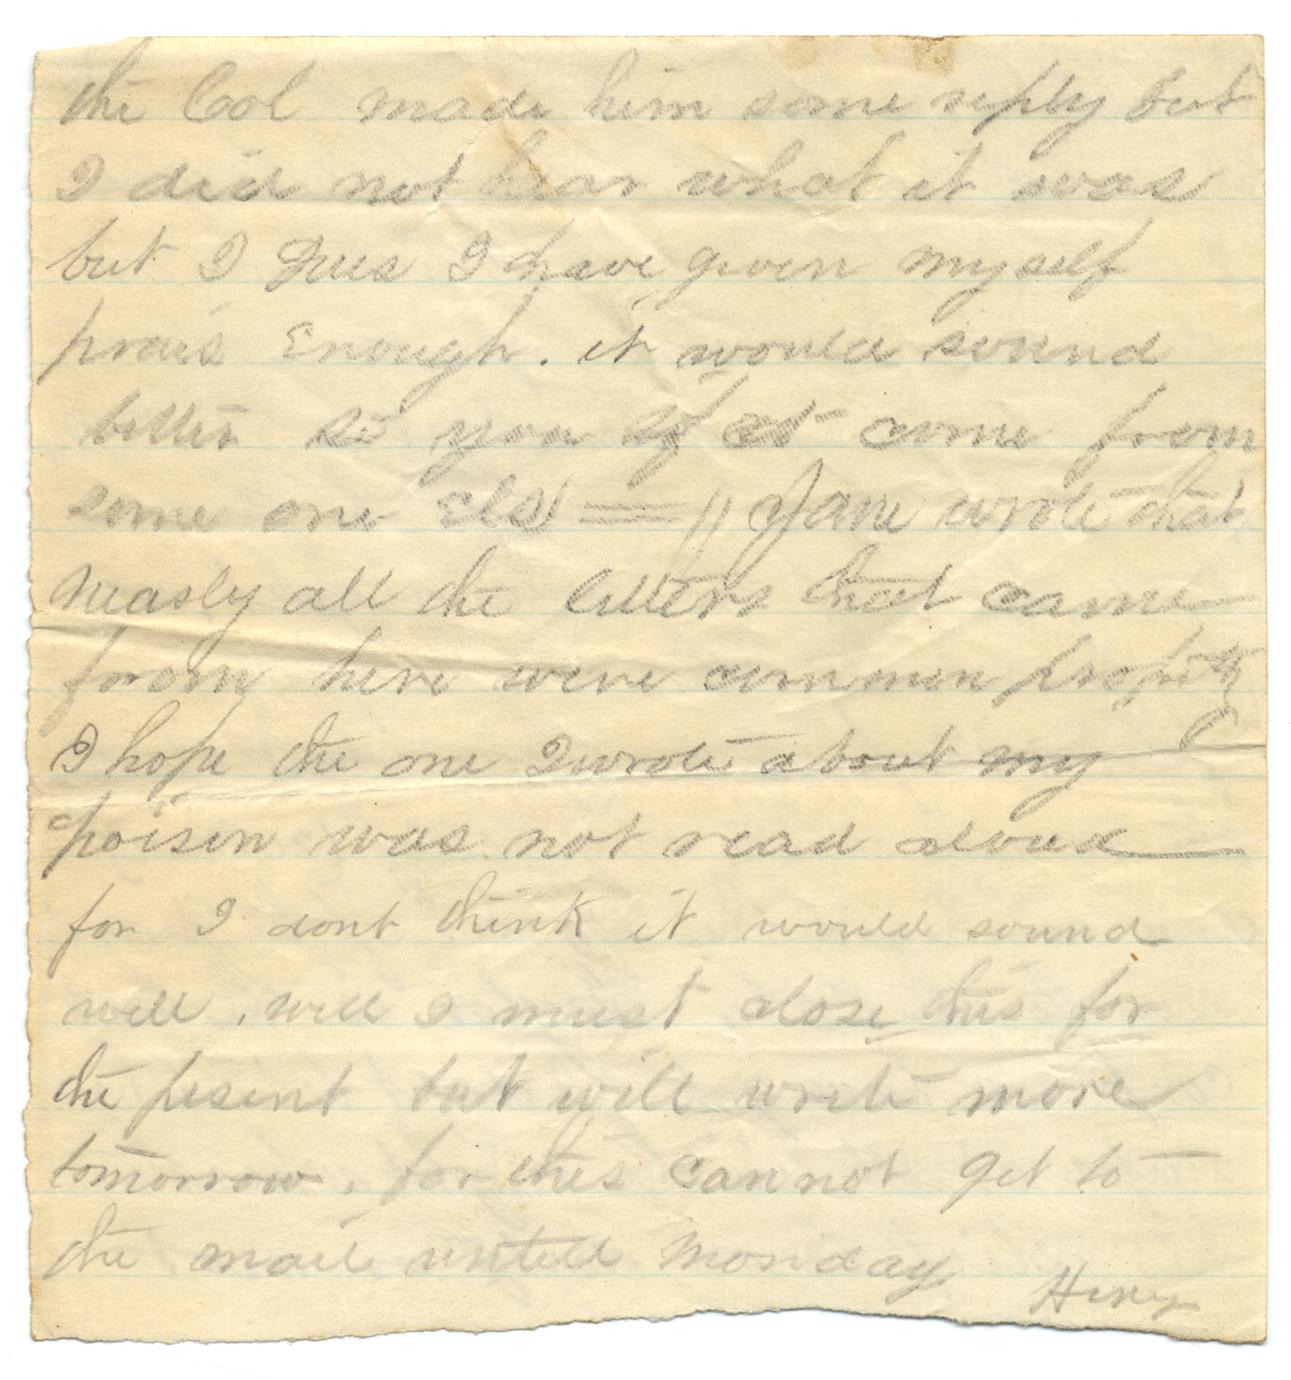 the Col made him some reply but
I did not hear what it was
but I gues I have given myself
prais Enough. it would sound
better to you if it come from
some one els = // Jane wrote that
nearly all the letters that came
forom here were common property
I hope the one I wrote about my
poison was not read aloud
for I dont think it would sound
well. well I must close this for
the present but will write more
tomorrow, for this cannot get to
the mail untill Monday
Henry